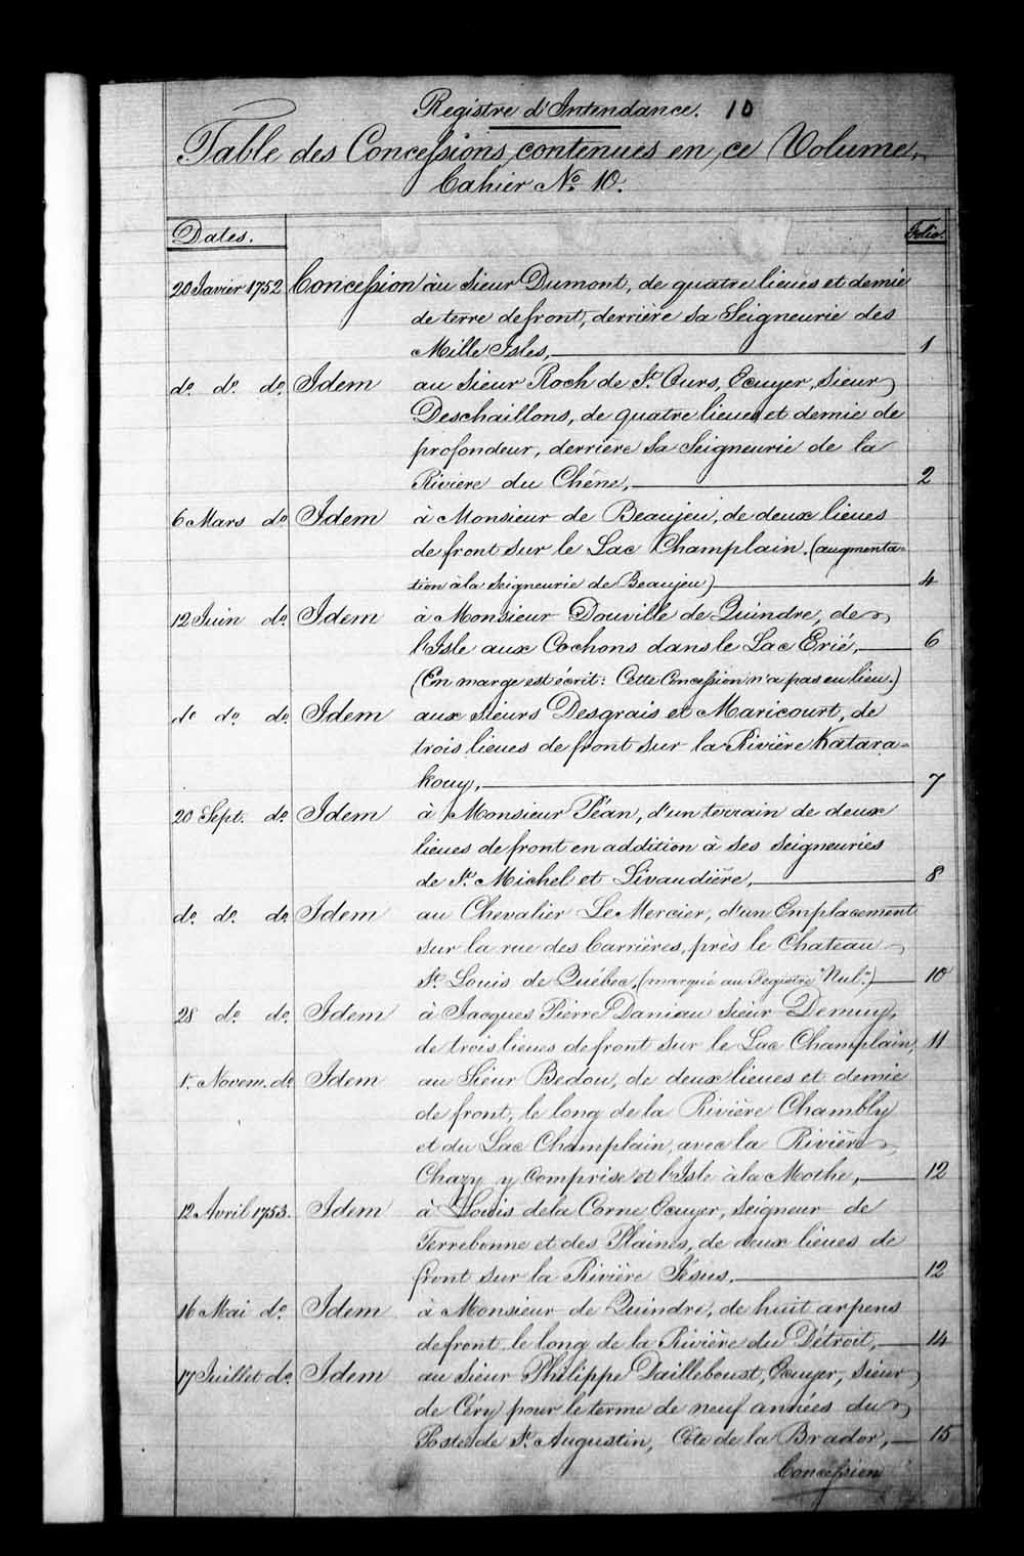 Registre d'Intendance. 10
Table des Concessions contenues en ce Volume,
Cahier No. 10.
Dates. Folio
20 Javier 1752 Concession au Sieur Dumont, de quatre lieues et demie
de terre de front, derrière sa Seigneurie des
Mille Isles, 1
do. do. do. Idem au Sieur Roch de St. Ours, Ecuyer, Sieur
Deschaillons, de quatre lieues et demie de
profondeur, derrière sa Seigneurie de la
Rivière du Chêne, 2
6 Mars do. Idem à Monsieur de Beaujeu, de deux lieues
de front sur le Lac Champlain. (augmenta=
tion à la Seigneurie de Beaujeu) 4
12 Juin do. Idem à Monsieur Douville de Quindre, de
l'Isle aux Cochons dans le Lac Erié, 6
(En marge est écrit: Cette Concession n'a pas eu lieu.)
do. do. do. Idem aux Sieurs Desgrais et Maricourt, de
trois lieues de front sur la Rivière Katara=
kouy, 7
20 Sept. do. Idem à Monsieur Péan, d'un terrain de deux
lieues de front en addition à ses Seigneuries
de St. Michel et Livaudière, 8
do. do. do. Idem au Chevalier Le Mercier, d'un Emplacement
sur la rue des Carrières, près le Chateau
St. Louis de Québec, (marqué au Registre "Nul") 10
28 do. do. Idem à Jacques Pierre Daniau Sieur Demuy,
de trois lieues de front sur le Lac Champlain, 11
1r. Novem. do. Idem au Sieur Bedou, de deux lieues et demie
de front, le long de la Rivière Chambly
et du Lac Champlain, avec la Rivière
Chazy y comprise et l'Isle à la Mothe, 12
12 Avril 1753. Idem à Louis de la Corne Ecuyer, Seigneur de
Terrebonne et des Plaines, de deux lieues de
front sur la Rivière Jésus. 12
16 Mai do. Idem à Monsieur de Quindre, de huit arpens
de front le long de la Rivière du Détroit, 14
17 Juillet do. Idem au Sieur Philippe Dailleboust, Ecuyer, Sieur
de Céry pour le terme de neuf années du
Poste de St. Augustin, Côte de la Brador, 15
Concession